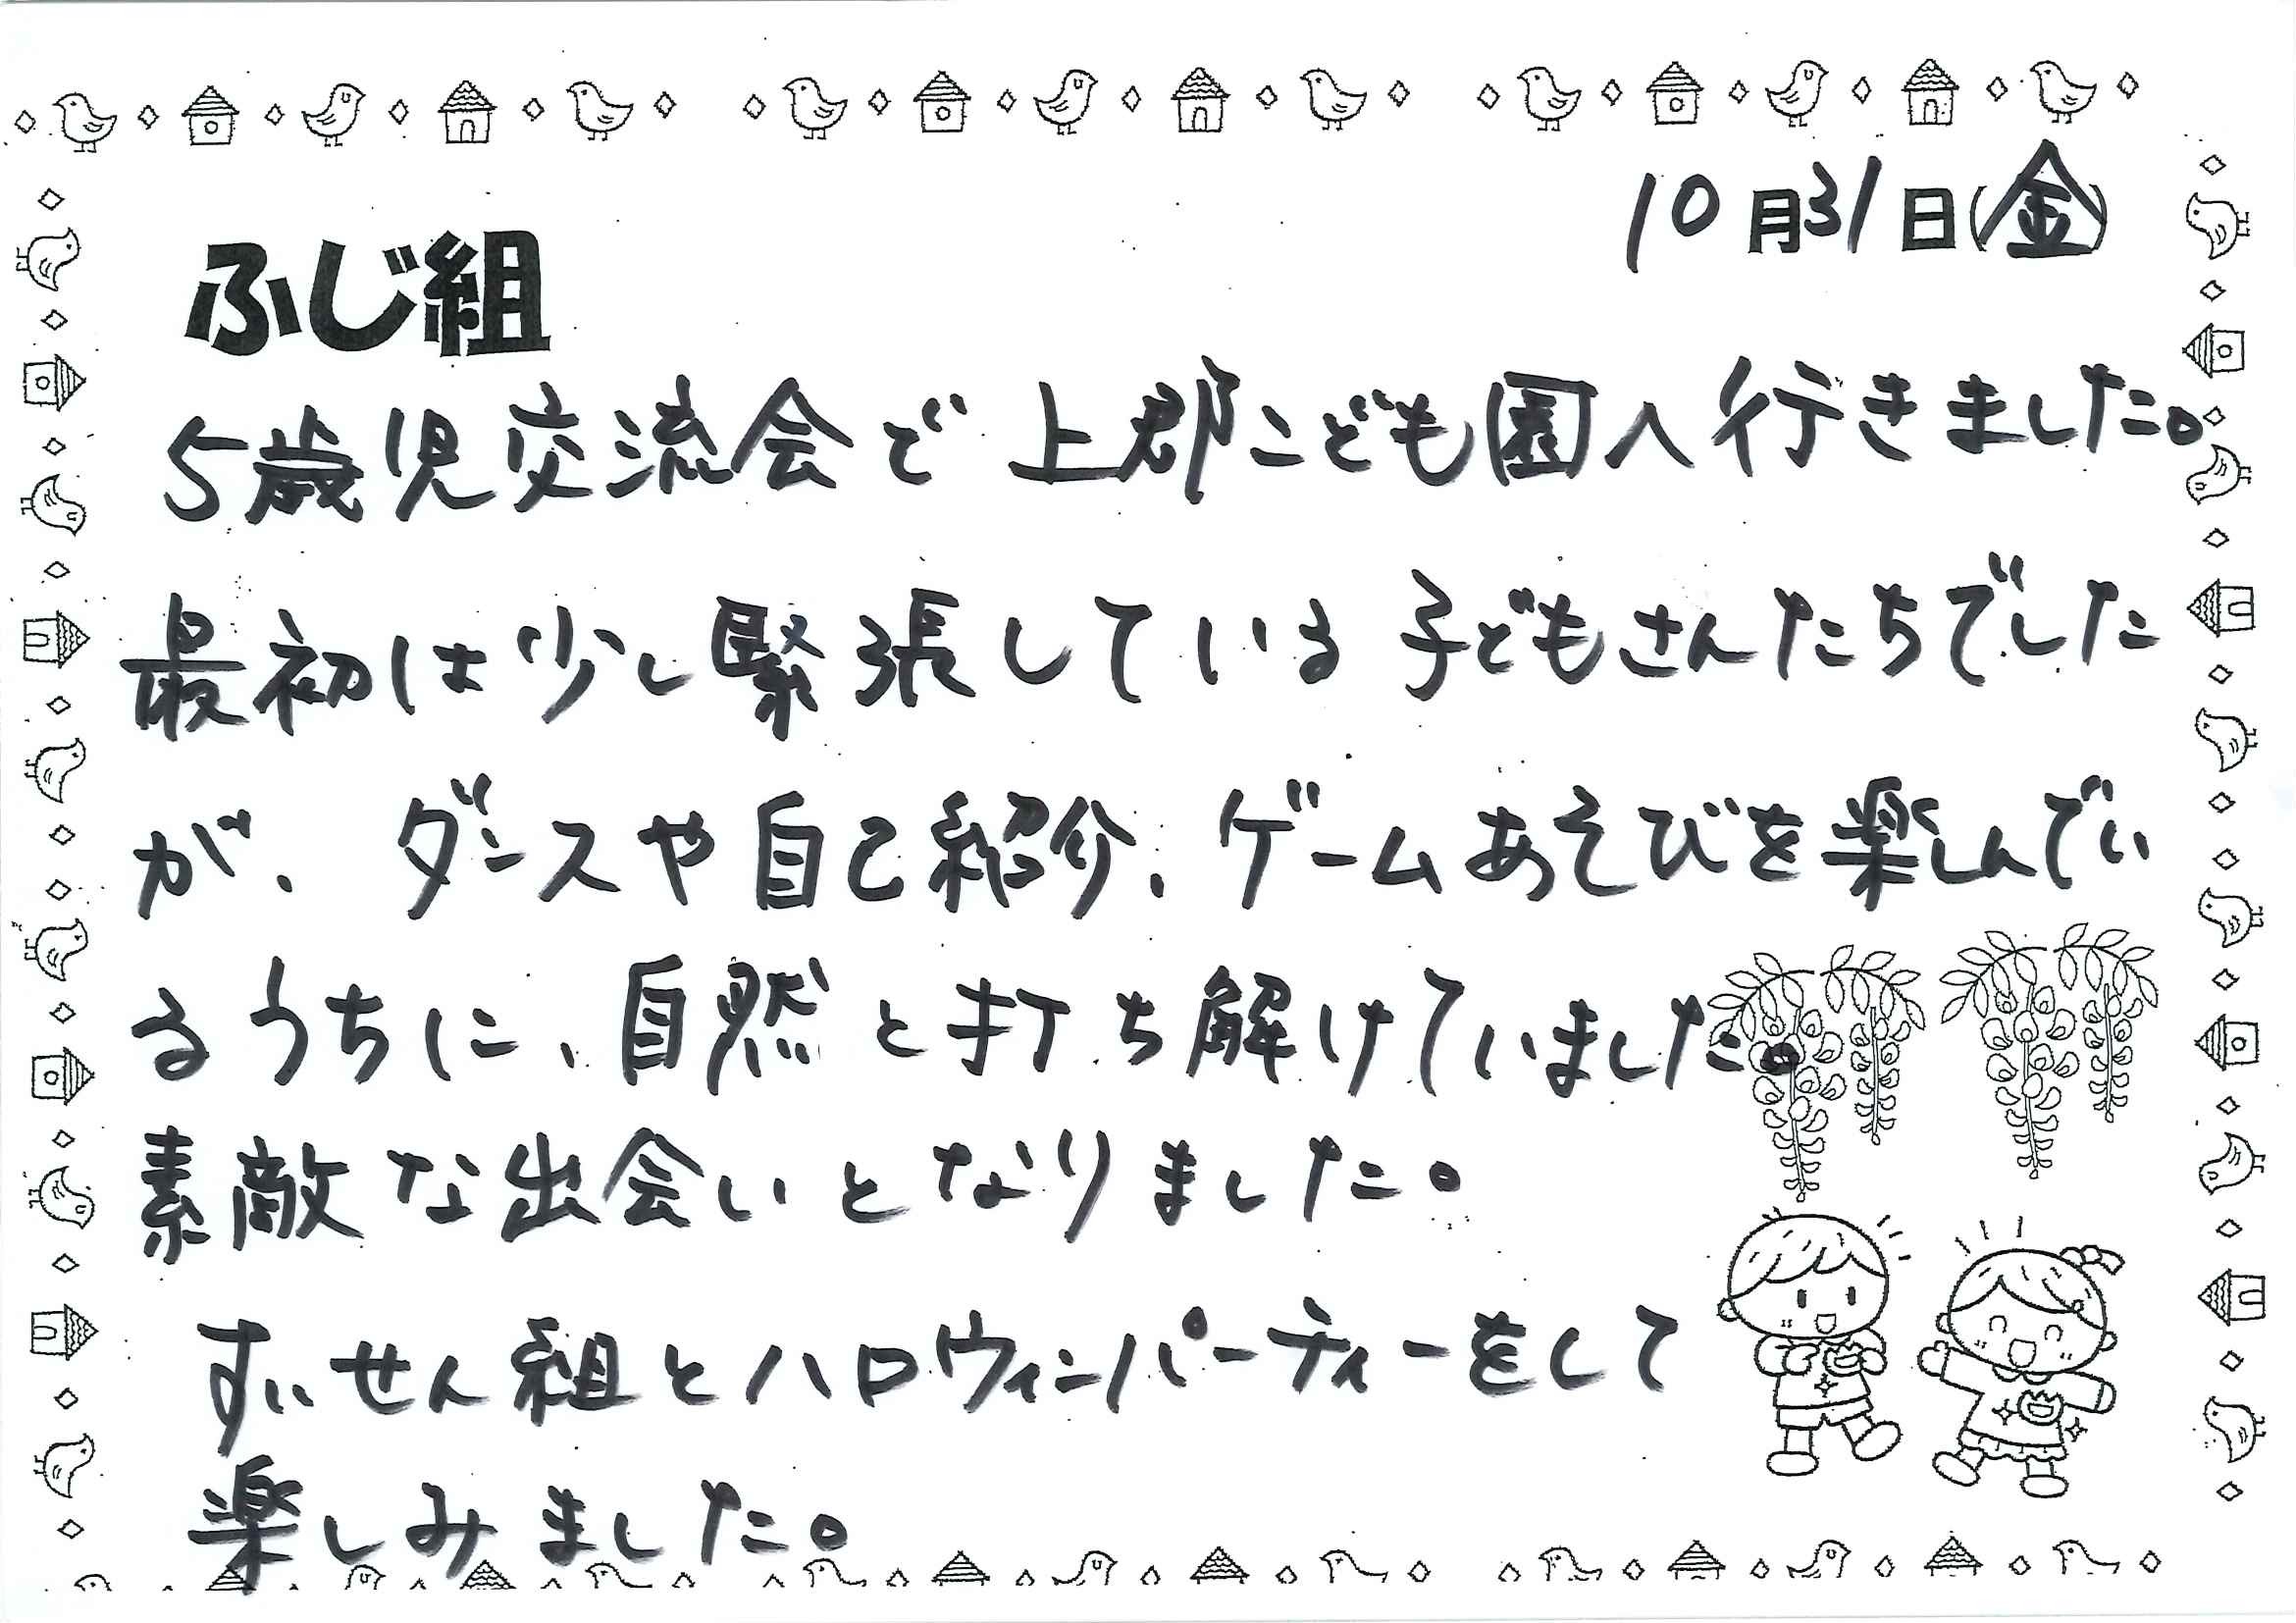 10月31日(金)
ふじ組
5歳児交流会で上郡こども園へ行きました。
最初は少し緊張している子どもさんたちでした
が、ダンスや自己紹介、ゲームあそびを楽しんでい
るうちに、自然と打ち解けていました。
素敵な出会いとなりました。
すいせん組とハロウィンパーティーをして
楽しみました。